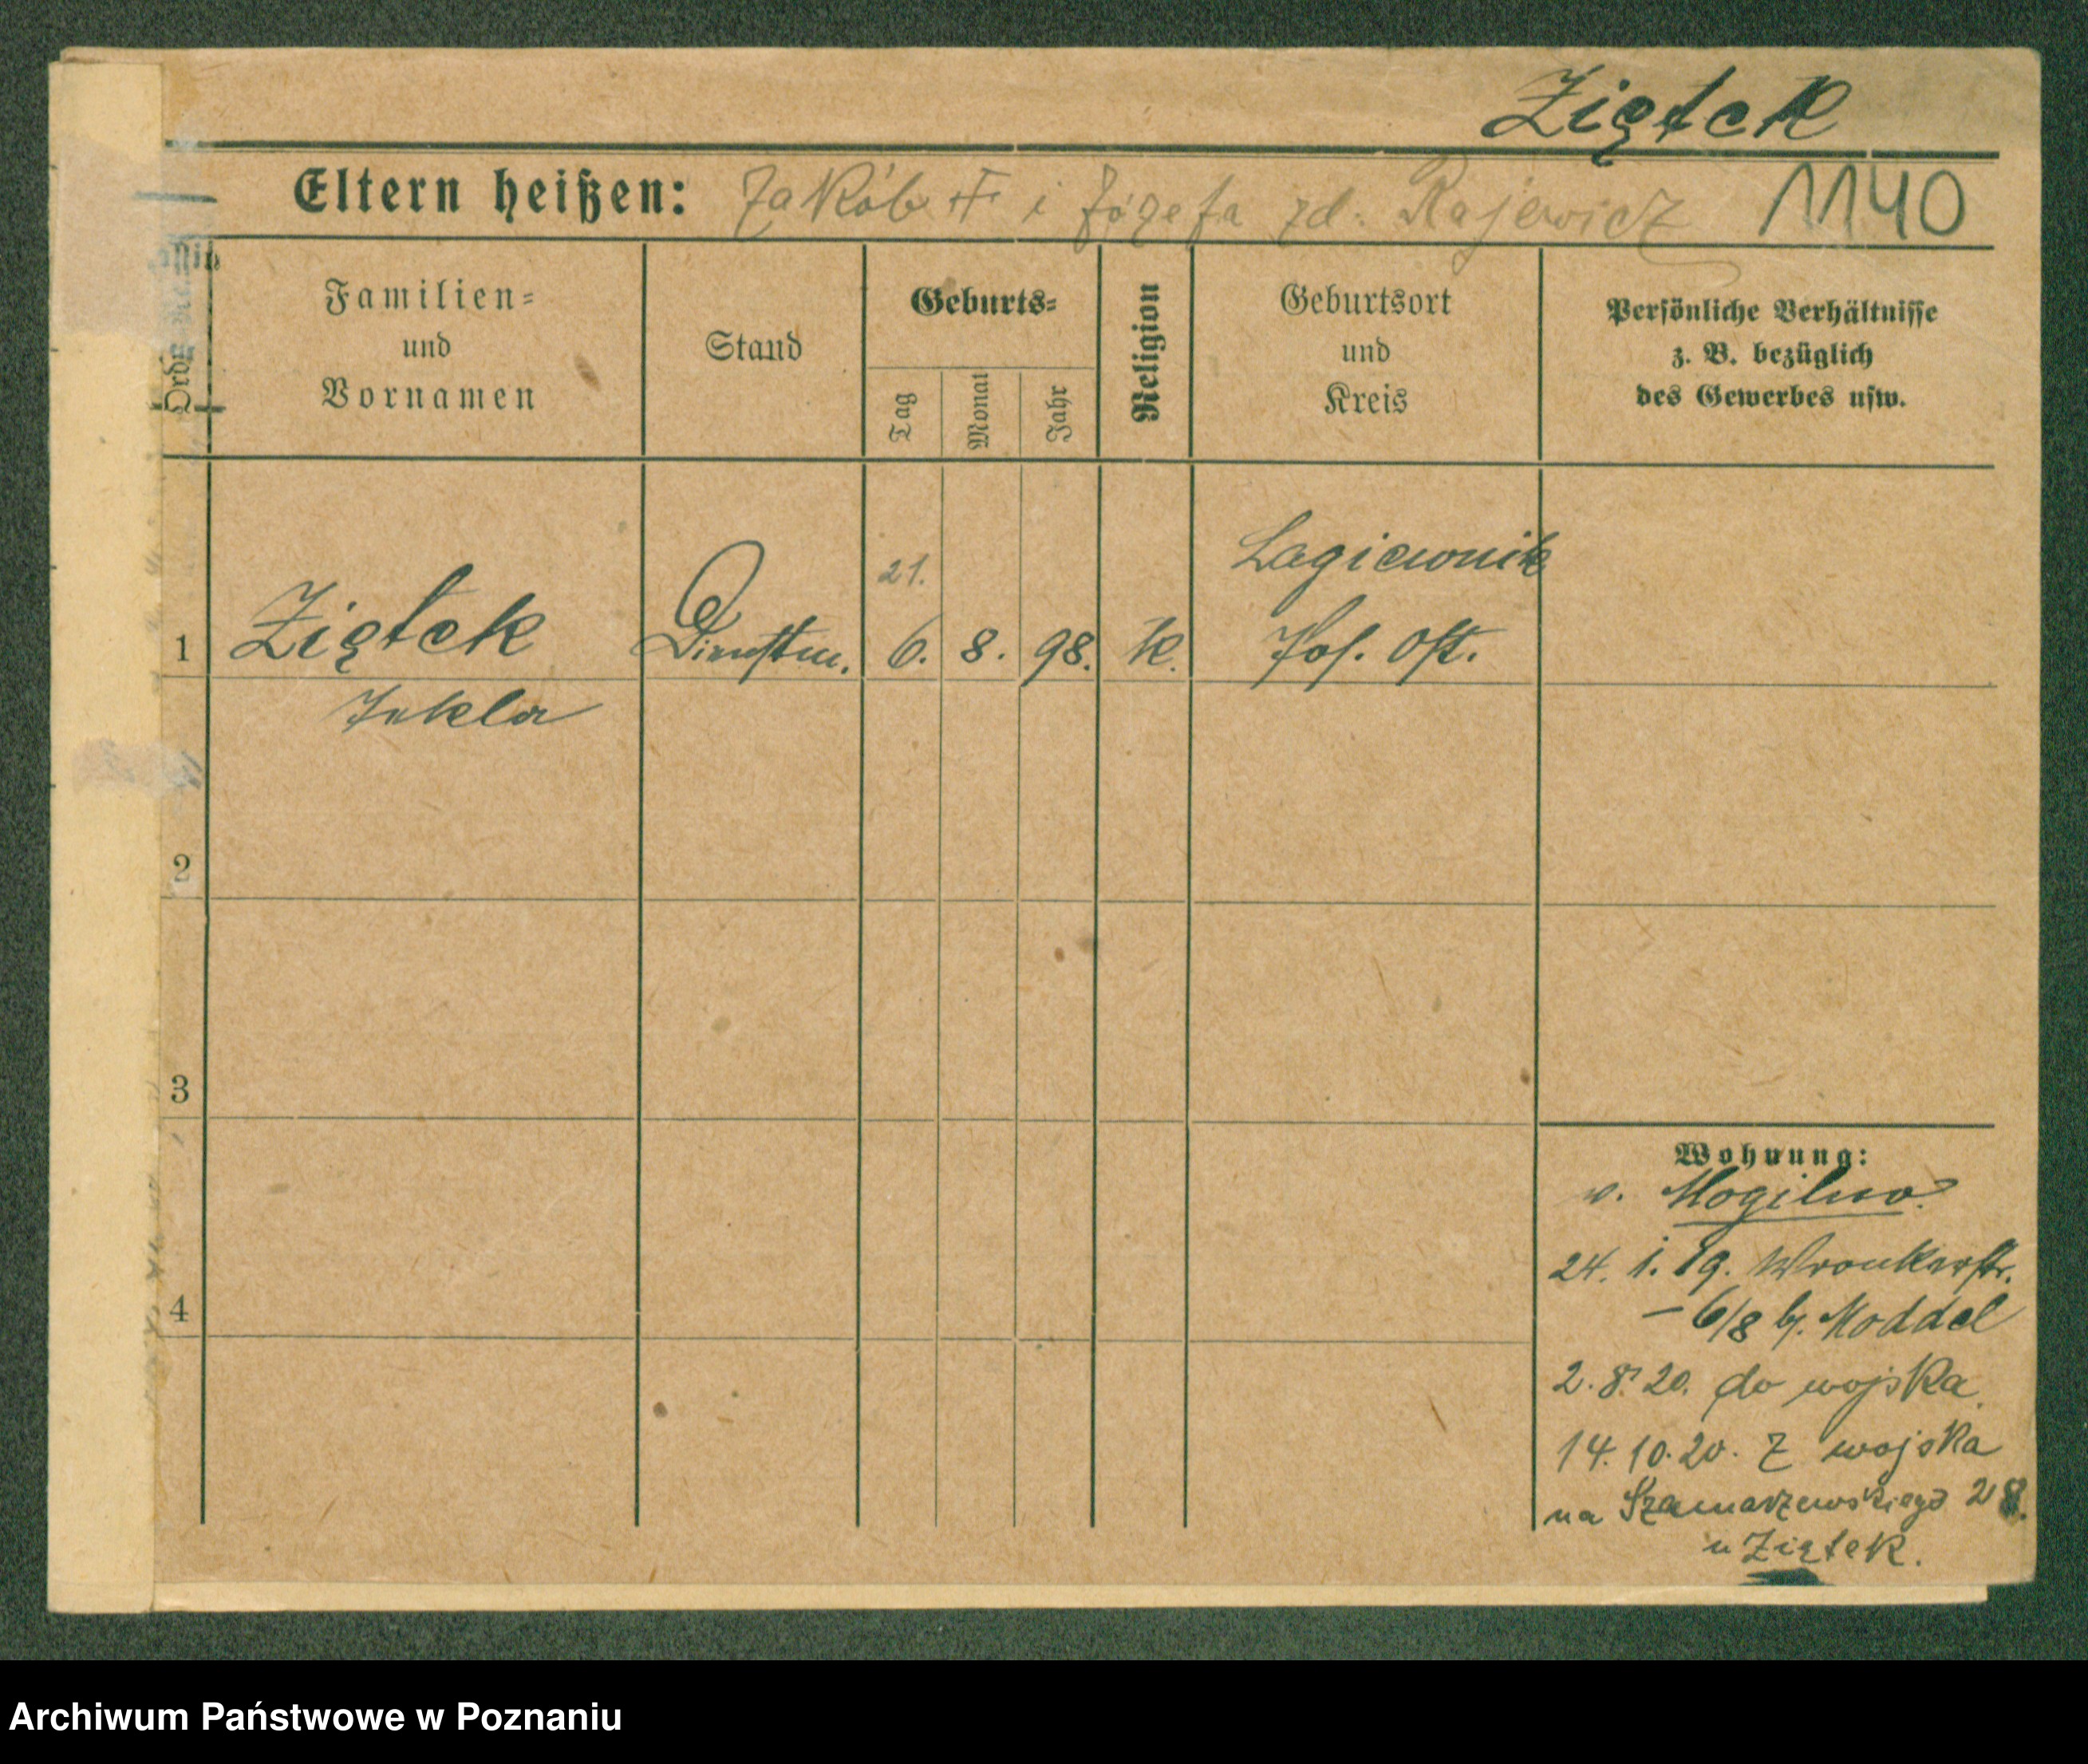 Ziątek
Eltern heißen: Jakób † i Józefa zd. Rajewicz 1140
Familien- und Vornamen
Stand
Geburts-
Tag
Monat
Jahr
Religion
Geburtsort und Kreis
Persönliche Verhältnisse
z. B. bezüglich
des Gewerbes usw.
Lagiewnik
21.
1 Ziątek Dienstm. 6. 8. 98. K. Pos. Ost.
Tekla
2
3
4
Wohnung:
v. Mogilno.
24. 1. 19. Wronkerstr.
- 6/8 b. Moddel
2. 8. 20. do wojska.
14. 10. 20. Z wojska
na Szamarzewskiego 28.
u Ziątek.
Archiwum Państwowe w Poznaniu